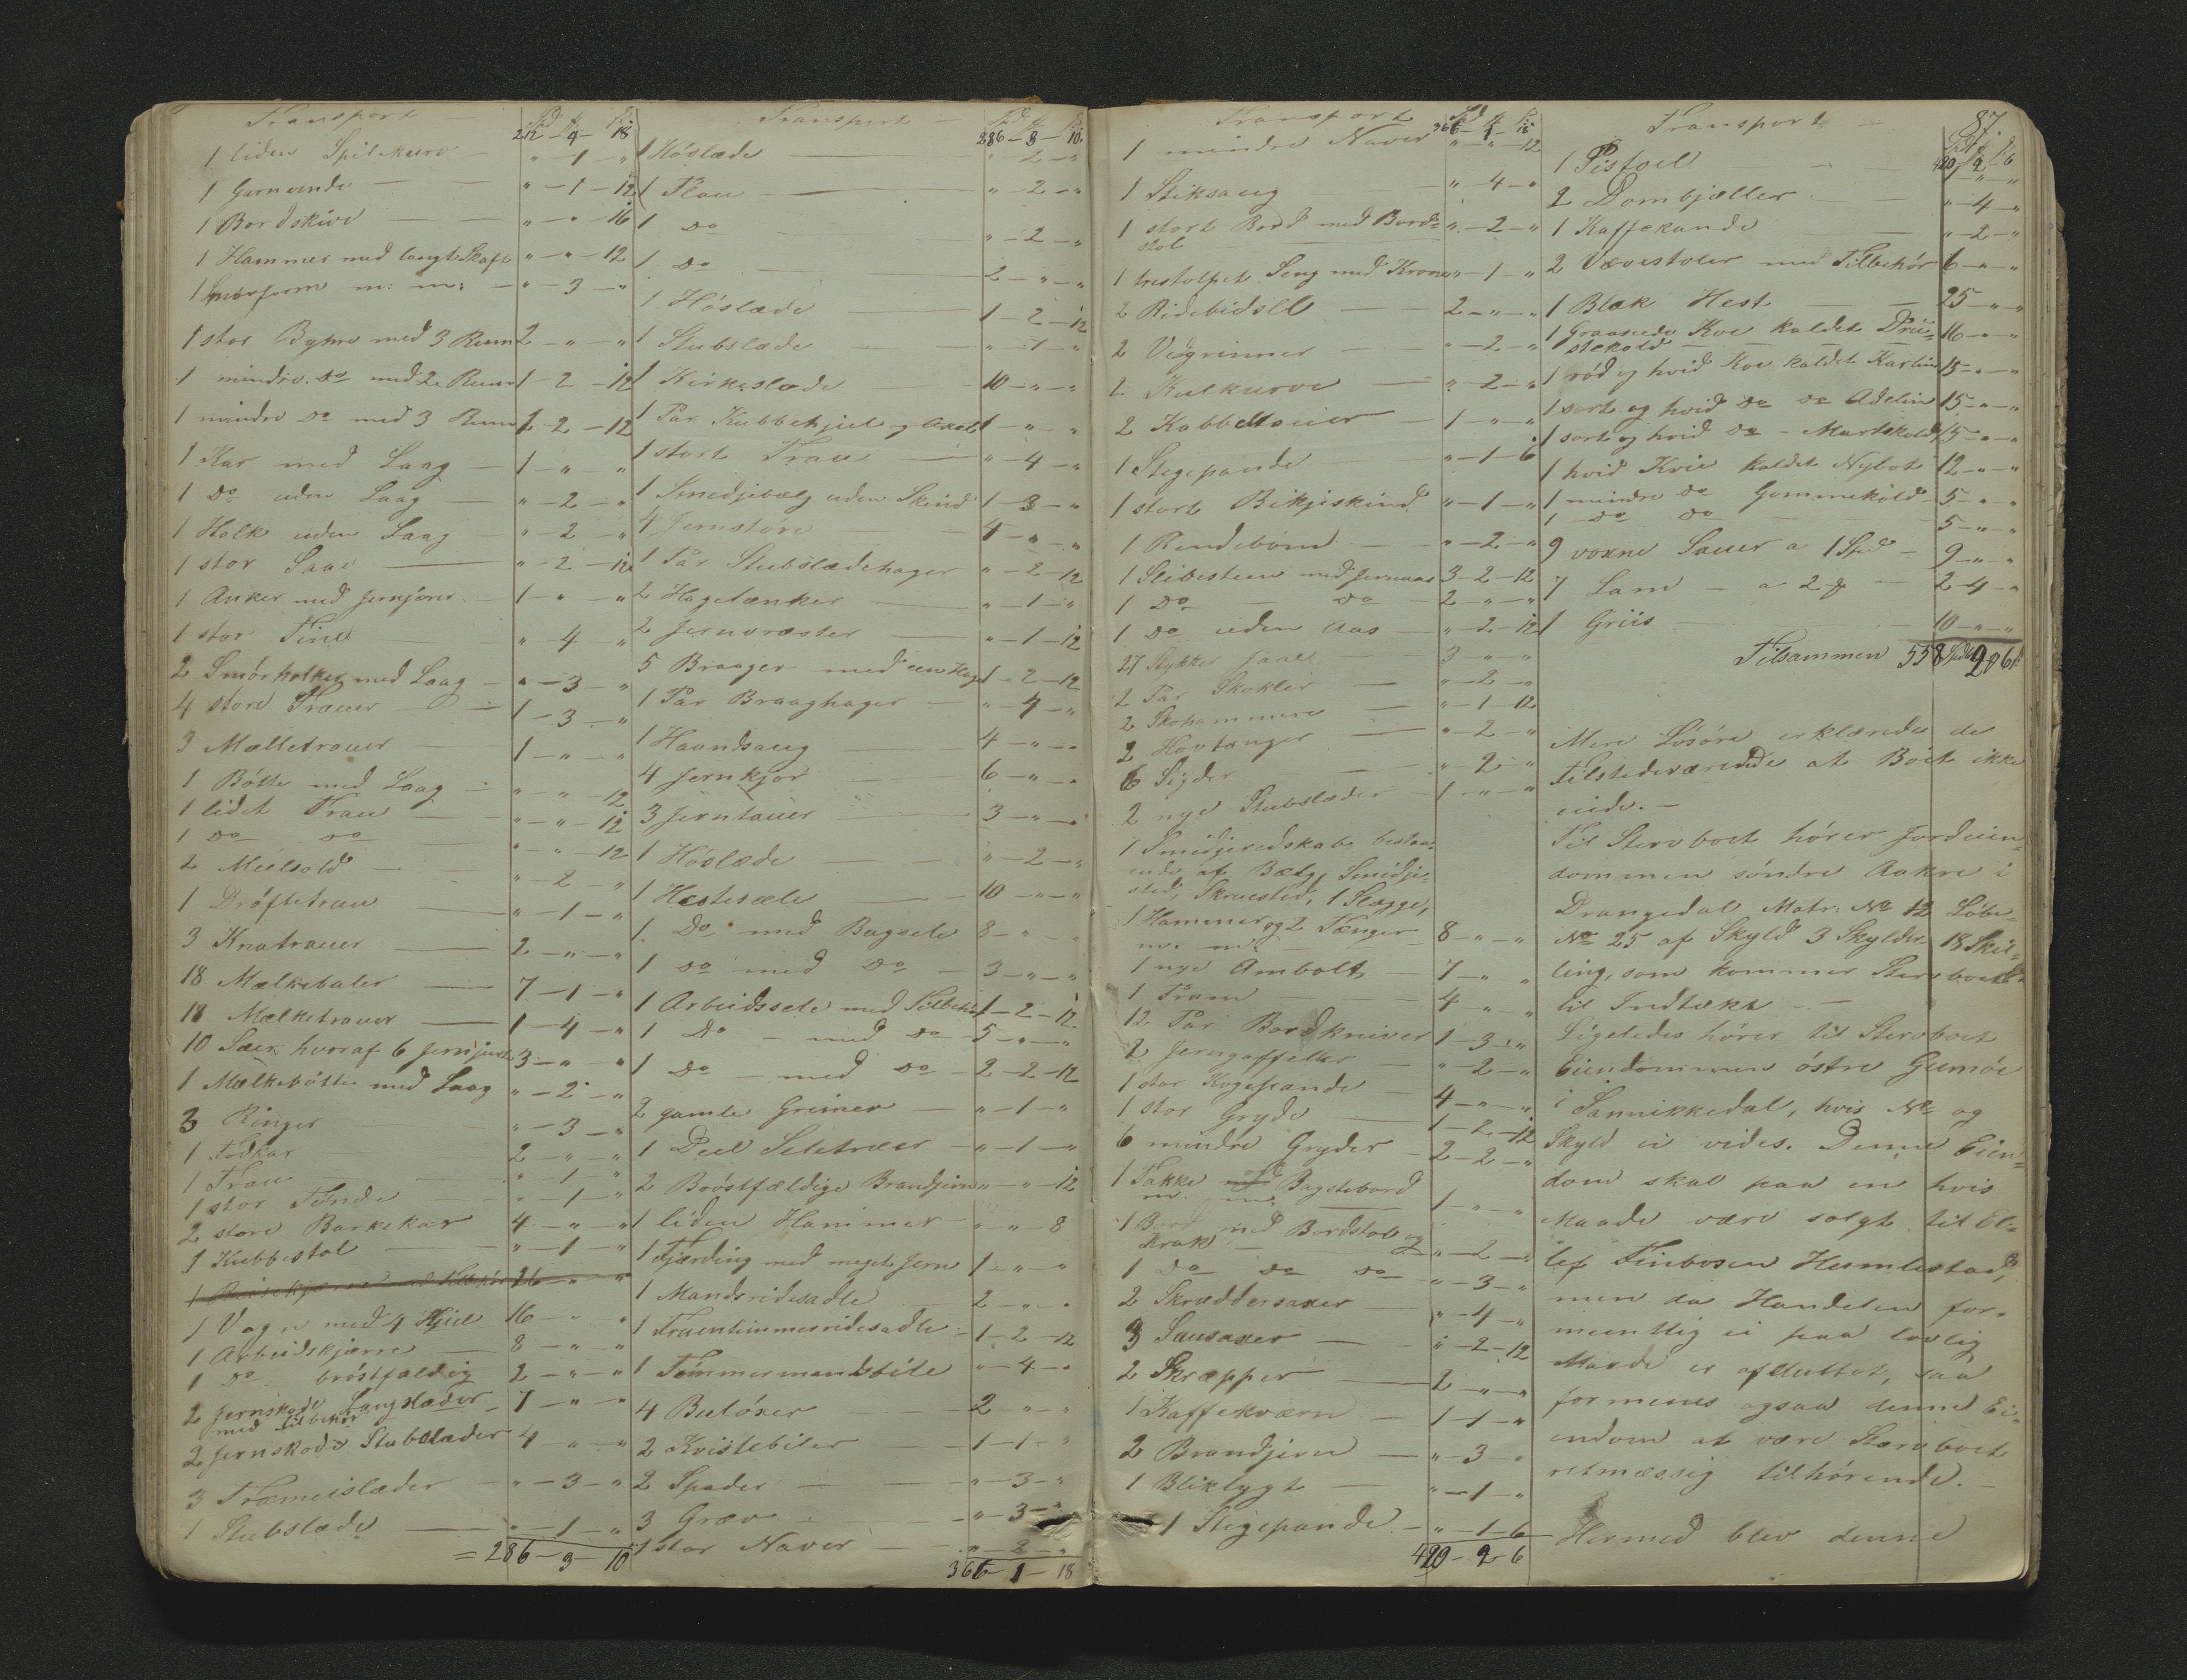 Transport 212 - 4 - 18
1 liden Spilekurv " - 1 - "
1 Garnvende " - 1 - 12
1 Bordskive " - " - 16
1 Hammer med langt Skaft " - " - 12
1 m: m: " - 3 - "
1 stor med 3 Rum 2 - " - "
1 mindre do med 2 Rum 1 - 2 - 12
1 mindre do med 3 Rum 1 - 2 - 12
1 Kar med Laag 1 - " - "
1 do uden Laag " - 2 - "
1 Holk uden Laag " - 2 - "
1 stor Saae " - 2 - 12
1 Anker med Jernjorer 1 - " - "
1 stor Tine " - 4 - "
2 Smørholker med Laag " - 3 - "
4 store Trauer 1 - 3 - "
3 Mælletrauer 1 - " - "
1 Bøtte med Laag " - " - 12
1 lidet Trau " - " - 12
1 do do " - " - 12
2 Meelsold " - 2 - "
1 Drøftetrau " - 1 - "
3 Knatrauer 2 - " - "
18 Mælkebaler 7 - 1 - "
18 Mælketrauer 1 - 4 - "
10 Saer hvoraf 6 3 - " - "
1 Mælkebøtte med Laag " - 2 - "
3 Ringer " - 3 - "
1 Fodkar 2 - " - "
1 Trau " - 1 - "
1 stor Tønde " - 1 - "
2 store Barkekar 4 - " - "
1 Kubbestol " - 1 - "
1 Vogn med 4 Hjul 16 - " - "
1 Arbeidskjærre 8 - " - "
1 do brøstfældig 2 - " - "
2 Jernskode Langslæder 7 - " - "
med tilbehør
2 Jernskode Stubslæder 4 - " - "
3 Træmeislæder " - 3 - "
1 Stubslæde " - 1 - "
= 286 - 3 - 10
Transport 286 - 3 - 10
1 Høslæde " - 2 - "
1 Plou " - 2 - "
1 do " - 2 - "
1 do 2 - " - "
1 Høslæde 1 - 2 - 12
1 Stubslæde " - 1 - "
1 Kirkeslæde 10 - " - "
1 Par Kubbehjul og Axel 1 - " - "
1 stort Trau " - 4 - "
1 Smedjebælg uden Skind 1 - 3 - "
4 Jernstøre 4 - " - "
1 Par Stubslædehager " - 2 - 12
2 Hagelænker " - 1 - "
2 " - 1 - 12
5 Braager med een Hage 1 - 2 - 12
1 Par Braaghager " - 4 - "
1 Haandsaug 4 - " - "
4 Jernkjør 6 - " - "
3 Jerntauer 3 - " - "
1 Høslæde " - 2 - "
1 Hestesæle 10 - " - "
1 Do med Bagsele 8 - " - "
1 do med do 3 - " - "
1 Arbeidssele med Tilbehør 1 - 2 - 12
1 Do - med do 5 - " - "
1 Do - med do 2 - 2 - 12
2 gamle Greimer " - 1 - "
1 Deel Seletræer " - 1 - "
2 Brøstfældige Brandjern " - " - 12
1 liden Hammer " - " - 8
1 Fjærding med meget Jern 1 - " - "
1 Mandsridesadle 2 - " - "
1 Fruentimmerridesadle 1 - 2 - 12
1 Tømmermandsbile " - 4 - "
4 Buløxer 2 - " - "
2 Kvistebiler 1 - 1 - "
2 Spader " - 3 - "
3 Græv " - 3 - "
1 stor Naver " - 2 - "
366 - 1 - 18
Transport 366 - 1 - 18
1 mindre Naver " - " - 12
1 Stiksaug " - 4 - "
1 stort Bord med Bord- " - 2 - "
stol
1 trestolpet Seng med Krone " - 1 - "
2 Ridebidsll 2 - " - "
2 Vedgrinner " - 2 - "
2 Kulkurve " - 2 - "
2 1 - " - "
1 Stegepande " - 1 - 6
1 stort Bikjiskind " - 1 - "
1 Rendebom " - 2 - "
1 Slibesteen med Jernaas 3 - 2 - 12
1 Do - do 2 - " - "
1 Do uden Aas " - 2 - 12
27 Stykker 3 - " - "
2 Par Skokler " - 2 - "
2 Skohammere " - 1 - 12
2 Hovtænger " - 2 - "
6 Sigder " - 2 - "
2 nye Stubslæder 1 - " - "
1 Smidjeredskab bestaa-
ende af Bælg, Smidje-
sted, Skruested, 1 Slægge,
1 Hammer og 2 Tænger 8 - " - "
m. m.
1 nye Ambolt 7 - " - "
1 Fram 4 - " - "
12 Par Bordkniver 1 - 3 - "
2 Jerngaffeller " - 2 - "
1 stor Kogepande 4 - " - "
1 stor Gryde 1 - 2 - 12
6 mindre Gryder 2 - 2 - "
1 Takke og Bagstebord 1 - " - "
m m
1 Bord med Bordstol og " - 2 - "
Krak
1 Do do do " - 3 - "
2 Skræddersaxer " - 4 - "
3 Sausaxer " - 2 - 12
2 Skræpper 2 - " - "
1 Kaffekværn 1 - 1 - "
2 Brandjern " - 3 - "
1 Bliklygt " - 1 - "
1 Stegepande " - 1 - 6
420 - 2 - 6
87
Transport 420 - 2 - 6
1 Pistoel " - " - "
2 Dombjæller " - 4 - "
1 Kaffekande " - 2 - "
2 Vævestoler med Tilbehør 6 - " - "
1 Blak Hest 25 - " - "
1 Graasede Koe kaldet Prü- 16 - " - "
stekold
1 rød og hvid Koe kaldet Karlin 15 - " - "
1 sort og hvid do do Adelin 15 - " - "
1 sort og hvid do - Martskold 15 - " - "
1 hvid Kvie kaldet Nybot 12 - " - "
1 mindre do Gommekold 5 - " - "
1 do do 5 - " - "
9 voxne Sauer a 1 Spd 9 - " - "
7 Lam - a 2 2 - 4 - "
1 Griis 10 - " - "
Tilsammen 558 Spd 2 6
Mere Løsøre erklærede de
tilstedeværende at Boet ikke
eiede. -
Til Stervboet hører Jordeien-
dommen søndre Aakre i
Drangedal Matr: No 12 Løbe-
No 25 af Skyld 3 Skylder 18 Skil-
ling, som kommer Stervboet
til Indtækt. -
Ligeledes hører til Stervboet
Eiendommen østre Gumøe
i Sannikkedal, hvis No og
Skyld ei vides. Denne Eien-
dom skal paa en hvis
Maade være solgt til El-
lef Finbosen Humlestad,
men da Handelen for-
mentlig ei paa lovlig
Maade er afsluttet, saa
formenes ogsaa denne Ei-
endom at være Stervboet
retmæssig tilhørende. -
Hermed blev denne